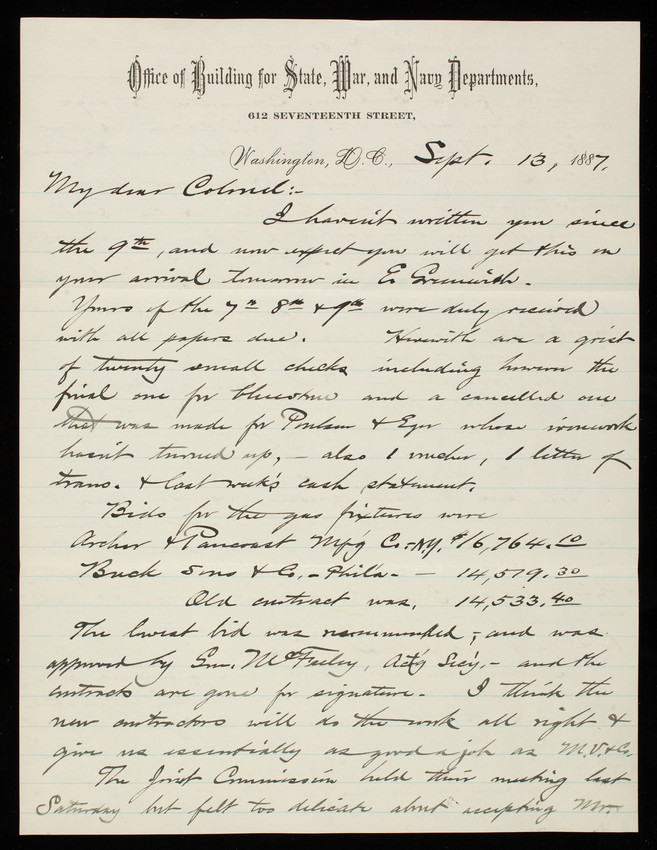 Office of Building for State, War, and Navy Departments,
612 SEVENTEENTH STREET,
Washington, D.C., Sept. 13, 1887.
My dear Colonel:-
I haven't written you since
the 9th, and now expect you will get this on
your arrival tomorrow in E. Greenwich.
Yours of the 7th 8th & 9th were duly received
with all papers due. Herewith are a grist
of twenty small checks including however the
final one for bluestone and a cancelled one
that was made for Poulson & Eger whose ironwork
hasn't turned up, - also 1 voucher, 1 letter of
trans. & last week's cash statement.
Bids for the gas fixtures were
Archer & Pancoast M'f'g Co. N.Y. $16,764.10
Buck Sons & Co. - Phila. - 14,519.30
Old contract was, 14,533.40
The lowest bid was recommended, and was
approved by Gen. McFeely, Act'g Sec'y. - and the
contracts are gone for signature. I think the
new contractors will do the work all right &
give us essentially as good a job as M.V. & Co.
The Joint Commission held their meeting last
Saturday but felt too delicate about accepting Mr.